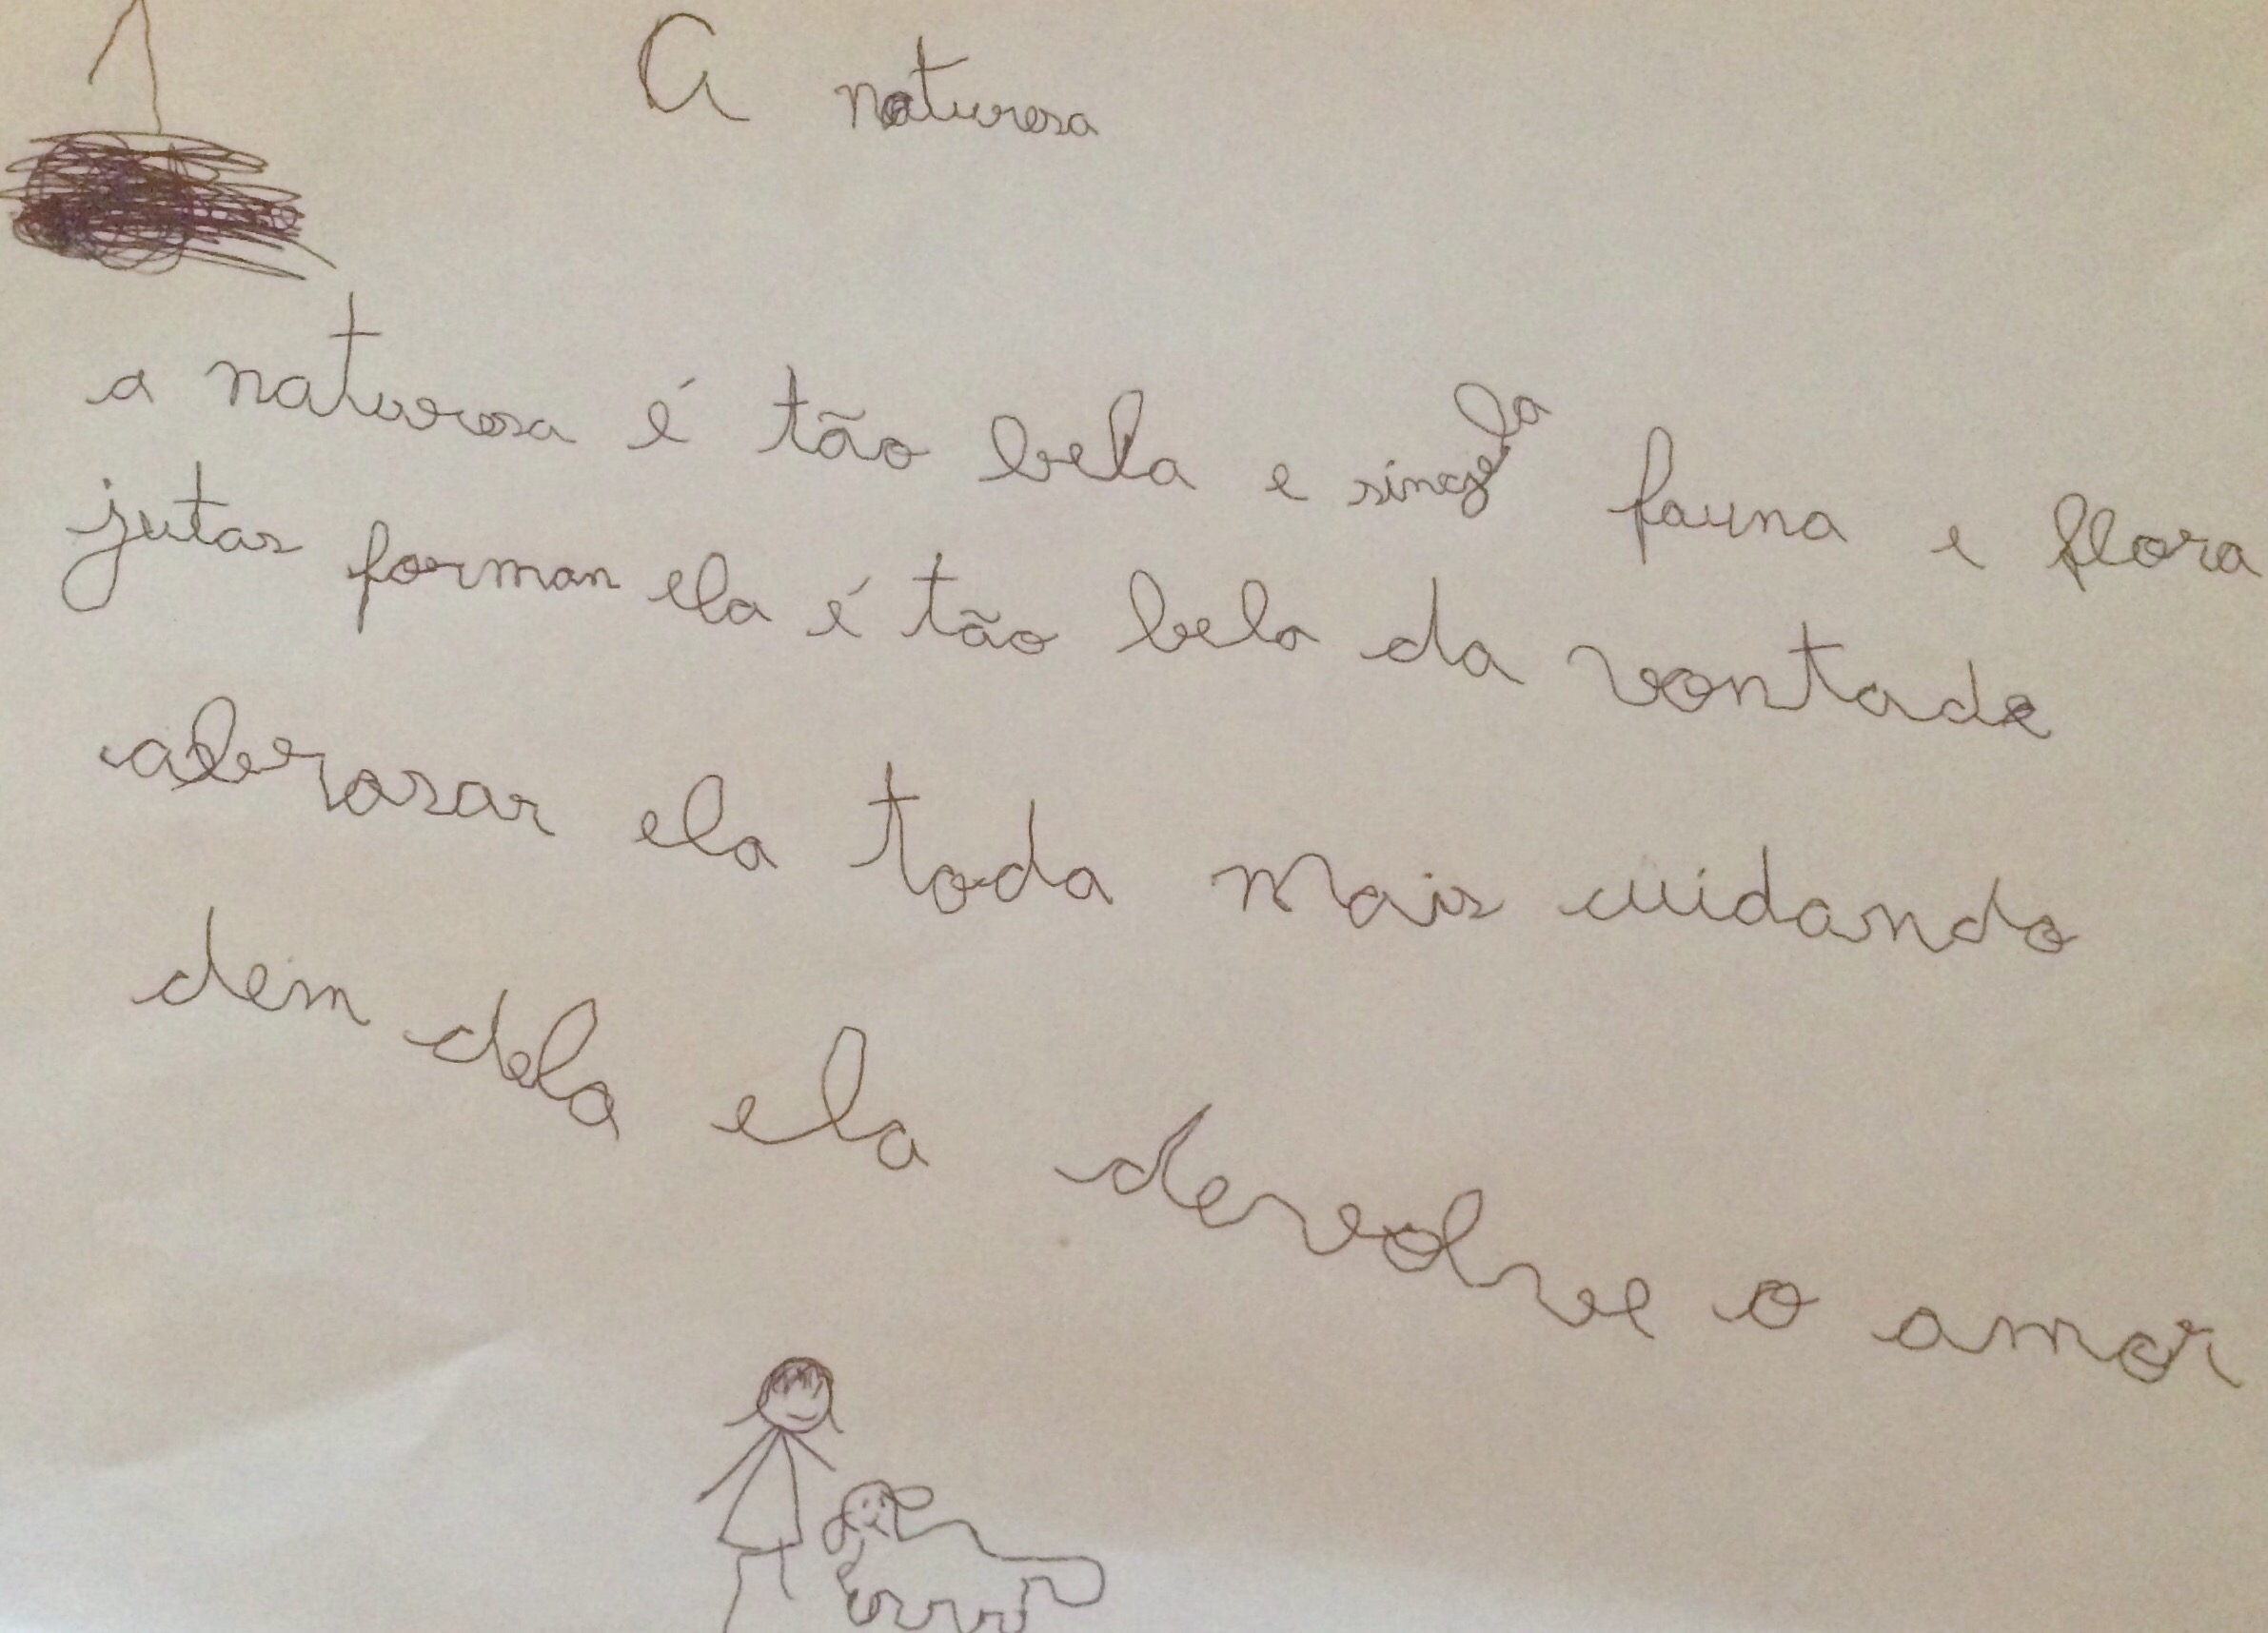 A naturesa
a naturesa é tão bela e singela fauna e flora
jutas forman ela é tão bela da vontade
abrasar ela toda mais cuidando
dem dela ela devolve o amor